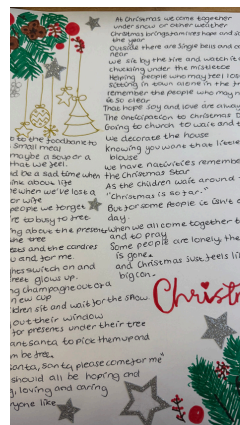 At Christmas we come together
under snow or other weather
Christmas brings families hope and
the year
Outside there are jingle bells and
near
we sit by the fire and watch it
chuckling under the mistletoe
Helping people who may feel los
sitting in town alone in the
remember the people who may
is so clear
That hope joy and love are alway
The anticipation to Christmas D
Going to church to wait and
we decorate the house
Knowing you want that little
house
we have nativities remember
the Christmas star
As the children wait around
"Christmas is so far."
But for some people it isn't
day.
when we all come together
and to pray
Some people are lonely the
is gone.
and Christmas just feels li
big con.
Christ
o to the foodbank
small menu
maybe a soup or a
that we feel.
d be a sad time when
ink about life
e when we lost a
or wife
eople we forget
re to busy to free.
ng about the presen
the tree
ets and the candies
u and for me.
hes switch on and
reet glows up.
ng champagne out of a
n new cup
ildren sit and wait for the snow
out their window
for presents under their tree
ant santa to pick them up and
m be free.
anta, santa, please come for me"
should all be hoping and
g, loving and caring
yone like